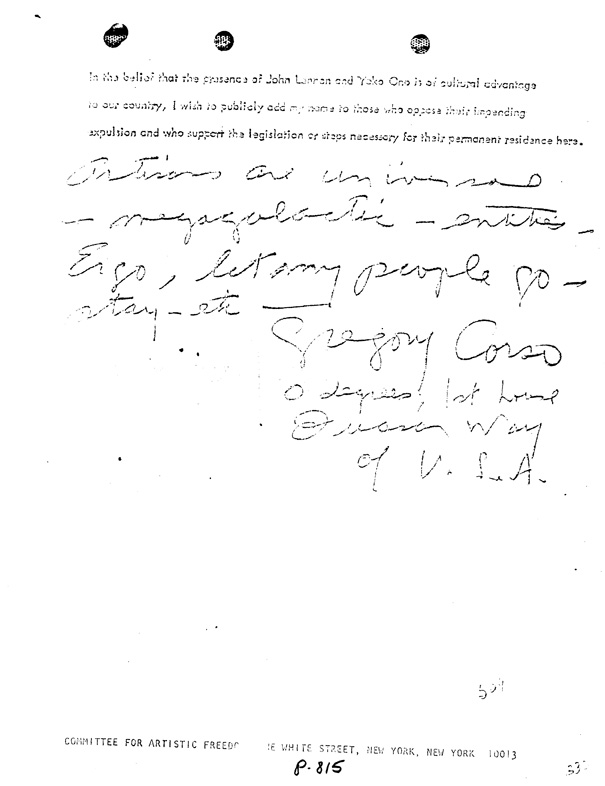 In the belief that the presence of John Lennon and Yoko Ono is of cultural advantage
to our country, I wish to publicly add my name to those who oppose their impending
expulsion and who support the legislation or steps necessary for their permanent residence here.
Artisans are universal
– megagalactic – entities –
Ergo, let my people go –
stay – etc —
Gregory Corso
0 degrees, 1st house
Way
of U.S.A.
COMMITTEE FOR ARTISTIC FREEDO E WHITE STREET, NEW YORK, NEW YORK 10013
P-815